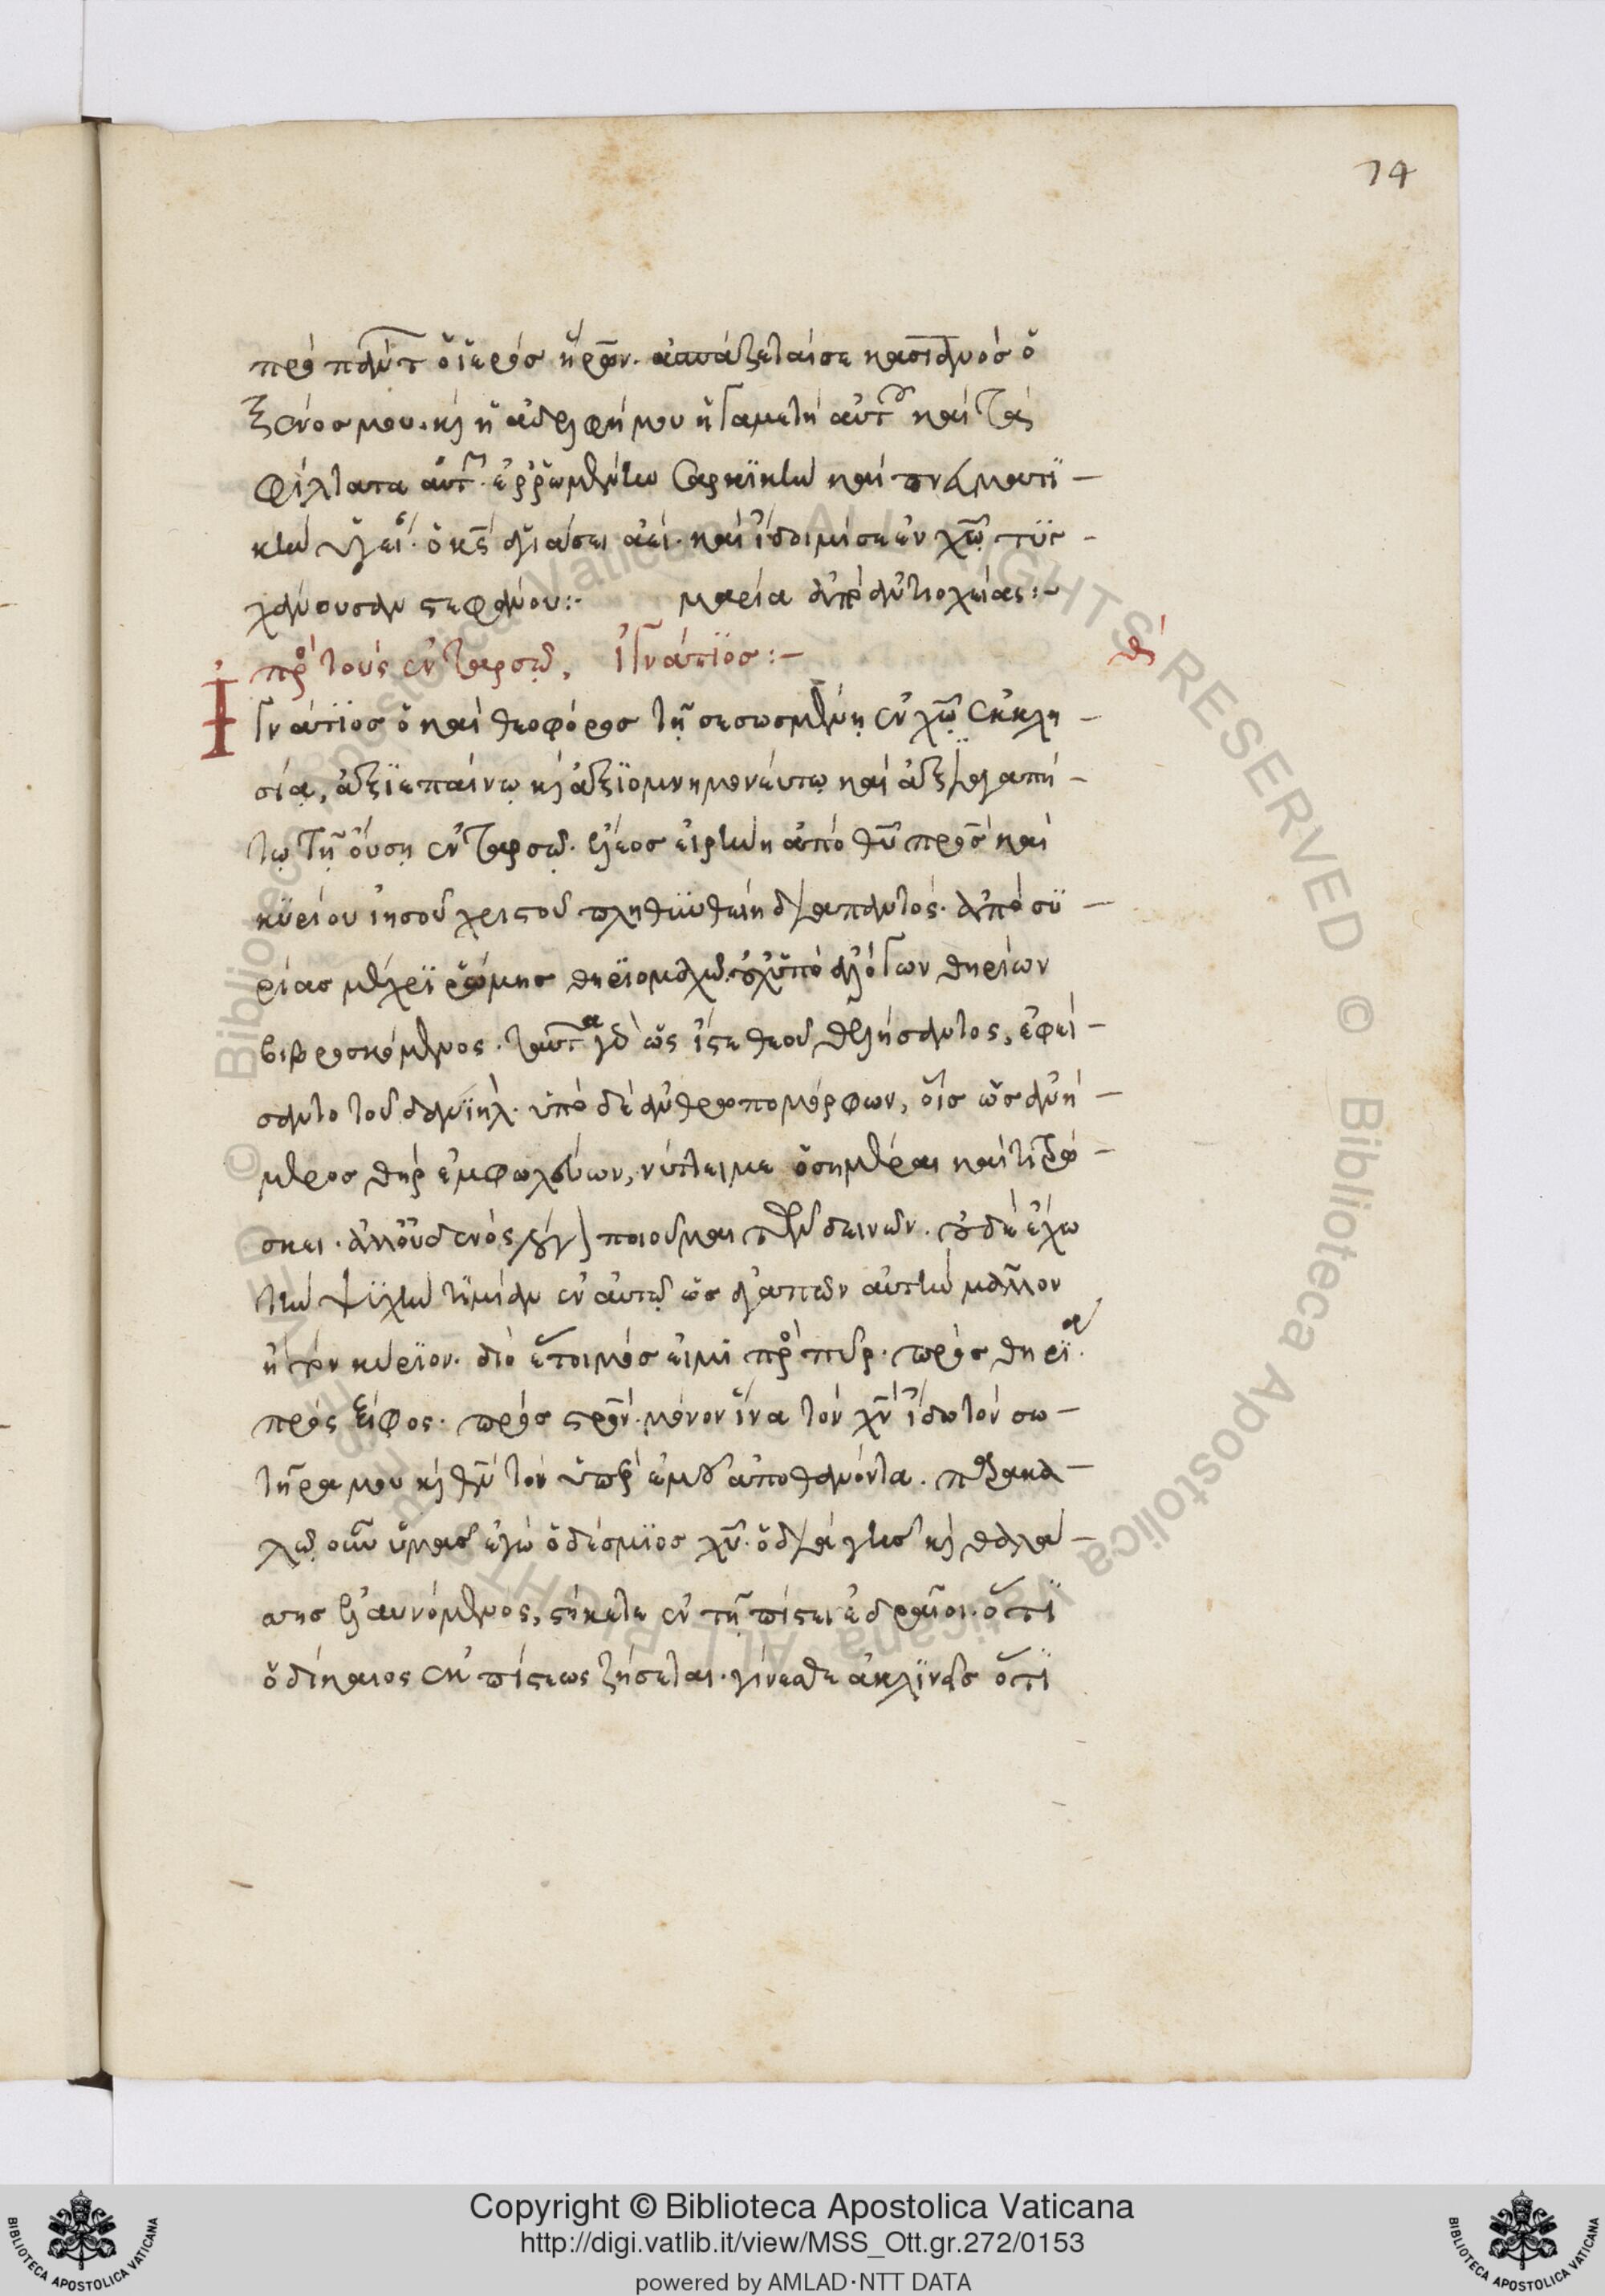 74
πρὸ πάντ ὁ ἱερὸς ἥρων. ἀσπάζεταί σε κασσιανὸς ὁ
ξένος μου. κ ἡ ἀδελφή μου ἡ γαμετὴ αὐτοῦ καὶ τὰ
φίλτατα αὐτῶν. ἐρρωμένην σαρκϊκὴν καὶ πνευματϊ -
κὴν ὑγεί. ὁ κς ἁγιάσει ἀεί. καὶ ἴδοιμί σε ἐν χῶ τϋ -
χάνουσαν στεφάνου:- μαρία ἀπὸ ἀντιοχείας:-
πρὸ τοὺς ἐν ταρσῶ, ἰγνάτϊος:- θ
Ἰγνάτϊος ὁ καὶ θεοφόρος τῇ σεσωσμένῃ ἐν χῶ ἐκκλη -
σίᾳ, ἀξϊεπαίνῳ κ ἀξϊομνημονεύτῳ καὶ ἀξιαγαπή -
τῳ τῇ οὔσῃ ἐν ταρσῷ. ἔλεος εἰρήνη ἀπὸ θυ προς καὶ
κϋρίου ἰησοῦ χριστοῦ πληθϋνθείη διαπαντός. ἀπὸ σϋ -
ρίας μέχρϊ ῥώμης θηρϊομαχῶ. οὐχ ὑπὸ ἀλόγων θηρίων
βιβρωσκόμενος. ταῦτα γὰρ ὡς ἴστε θεοῦ θελήσαντος, ἐφεί -
σαντο τοῦ δανϊήλ. ὑπὸ δὲ ἀνθρωπομόρφων, οἷς ὡς ἀνή -
μερος θὴρ ἐμφωλεύων, νύττει με ὁσημέραι καὶ τιτρώ -
σκει. ἀλλ' οὐδενὸς λόγον ποιοῦμαι τῶν δεινῶν. οὐδὲ ἔχω
τὴν ψϋχὴν τϊμίαν ἐν αὐτῷ ὡς ἀγαπῶν αὐτὴν μᾶλλον
ἢ τὸν κύρϊον. διὸ ἕτοιμός εἰμι πρὸ πῦρ. πρὸς θηρϊα.
πρὸς ξίφος. πρὸς στρον. μόνον ἵνα τὸν χν ἴδω τὸν σω -
τῆρα μου κ θν τὸν ὑπὲρ ἐμοῦ ἀποθανόντα. παρακα -
λῶ οὖν ὑμᾶς ἐγὼ ὁ δέσμϊος χυ. ὁ διὰ γῆς κ θαλά -
σσης ἐλαυνόμενος, στήκετε ἐν τῇ πίστει ἑδραῖοι. ὅτϊ
ὁ δίκαιος ἐκ πίστεως ζήσεται. γίνεσθε ἀκλϊνεῖς ὅτϊ
Copyright © Biblioteca Apostolica Vaticana
http://digi.vatlib.it/view/MSS_Ott.gr.272/0153
powered by AMLAD·NTT DATA